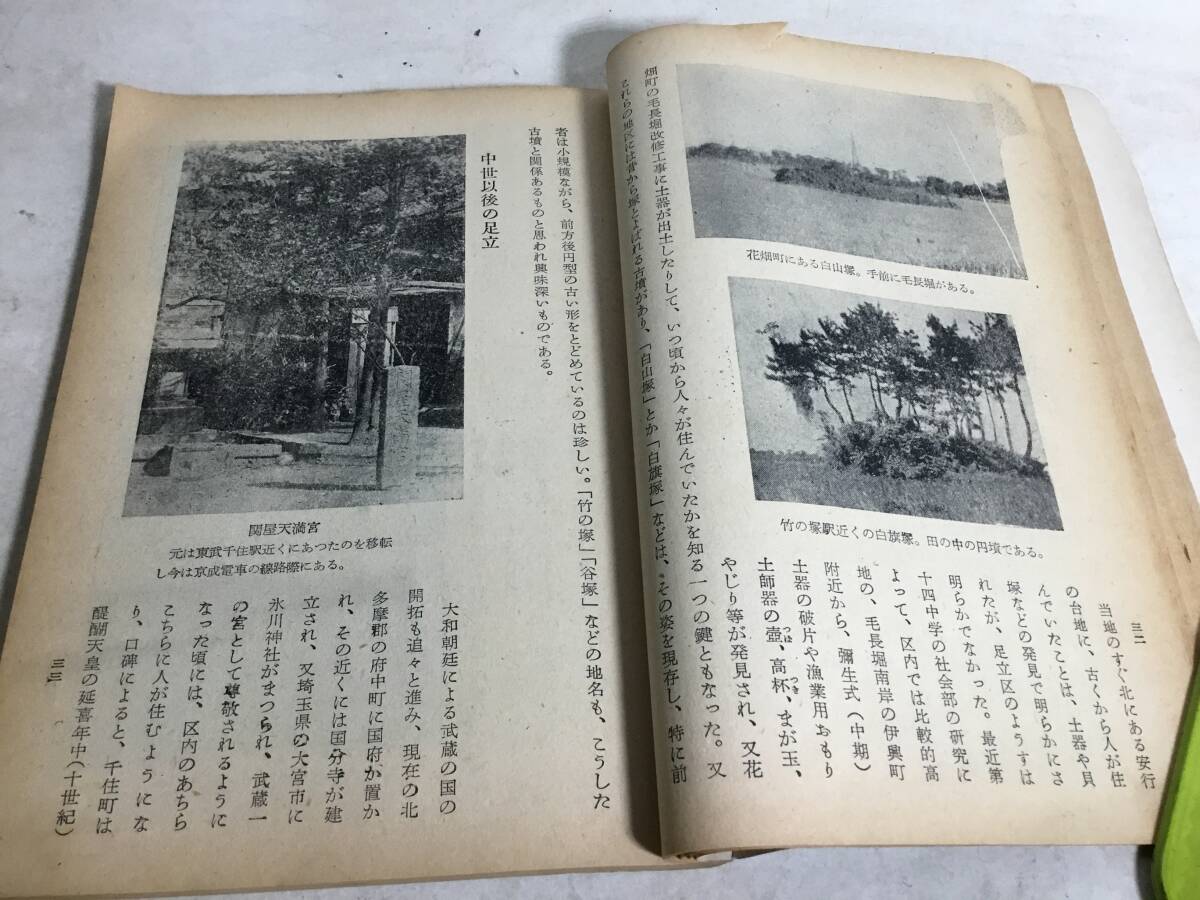 三二
花畑町にある白山塚。手前に毛長堀がある。
竹の塚駅近くの白旗塚。田の中の円墳である。
当地のすぐ北にある安行
の台地に、古くから人が住
んでいたことは、土器や貝
塚などの発見で明らかにさ
れたが、足立区のようすは
明らかでなかった。最近第
十四中学の社会部の研究に
よって、区内では比較的高
地の、毛長堀南岸の伊興町
附近から、彌生式(中期)
土器の破片や漁業用おもり
土師器の壺、高杯、まが玉、
つぼ
つき
やじり等が発見され、又花
畑町の毛長堀改修工事に土器が出土したりして、いつ頃から人々が住んでいたかを知る一つの鍵ともなった。又
これらの地区には昔から塚とよばれる古墳があり、「白山塚」とか「白旗塚」などは、その姿を現存し、特に前
者は小規模ながら、前方後円型の古い形をとどめているのは珍しい。「竹の塚」「谷塚」などの地名も、こうした
古墳と関係あるものと思われ興味深いものである。
中世以後の足立
関屋天満宮
元は東武千住駅近くにあつたのを移転
し今は京成電車の線路際にある。
大和朝廷による武蔵の国の
開拓も追々と進み、現在の北
多摩郡の府中町に国府が置か
れ、その近くには国分寺が建
立され、又埼玉県の大宮市に
氷川神社がまつられ、武蔵一
の宮として尊敬されるように
なった頃には、区内のあちら
こちらに人が住むようにな
り、口碑によると、千住町は
醍醐天皇の延喜年中(十世紀)
三三